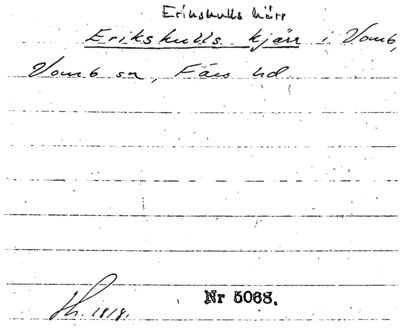 Erikskulls kärr
Erikskulls kjärr i Vomb,
Vomb sn, Färs hd
1818.
Nr 5068.